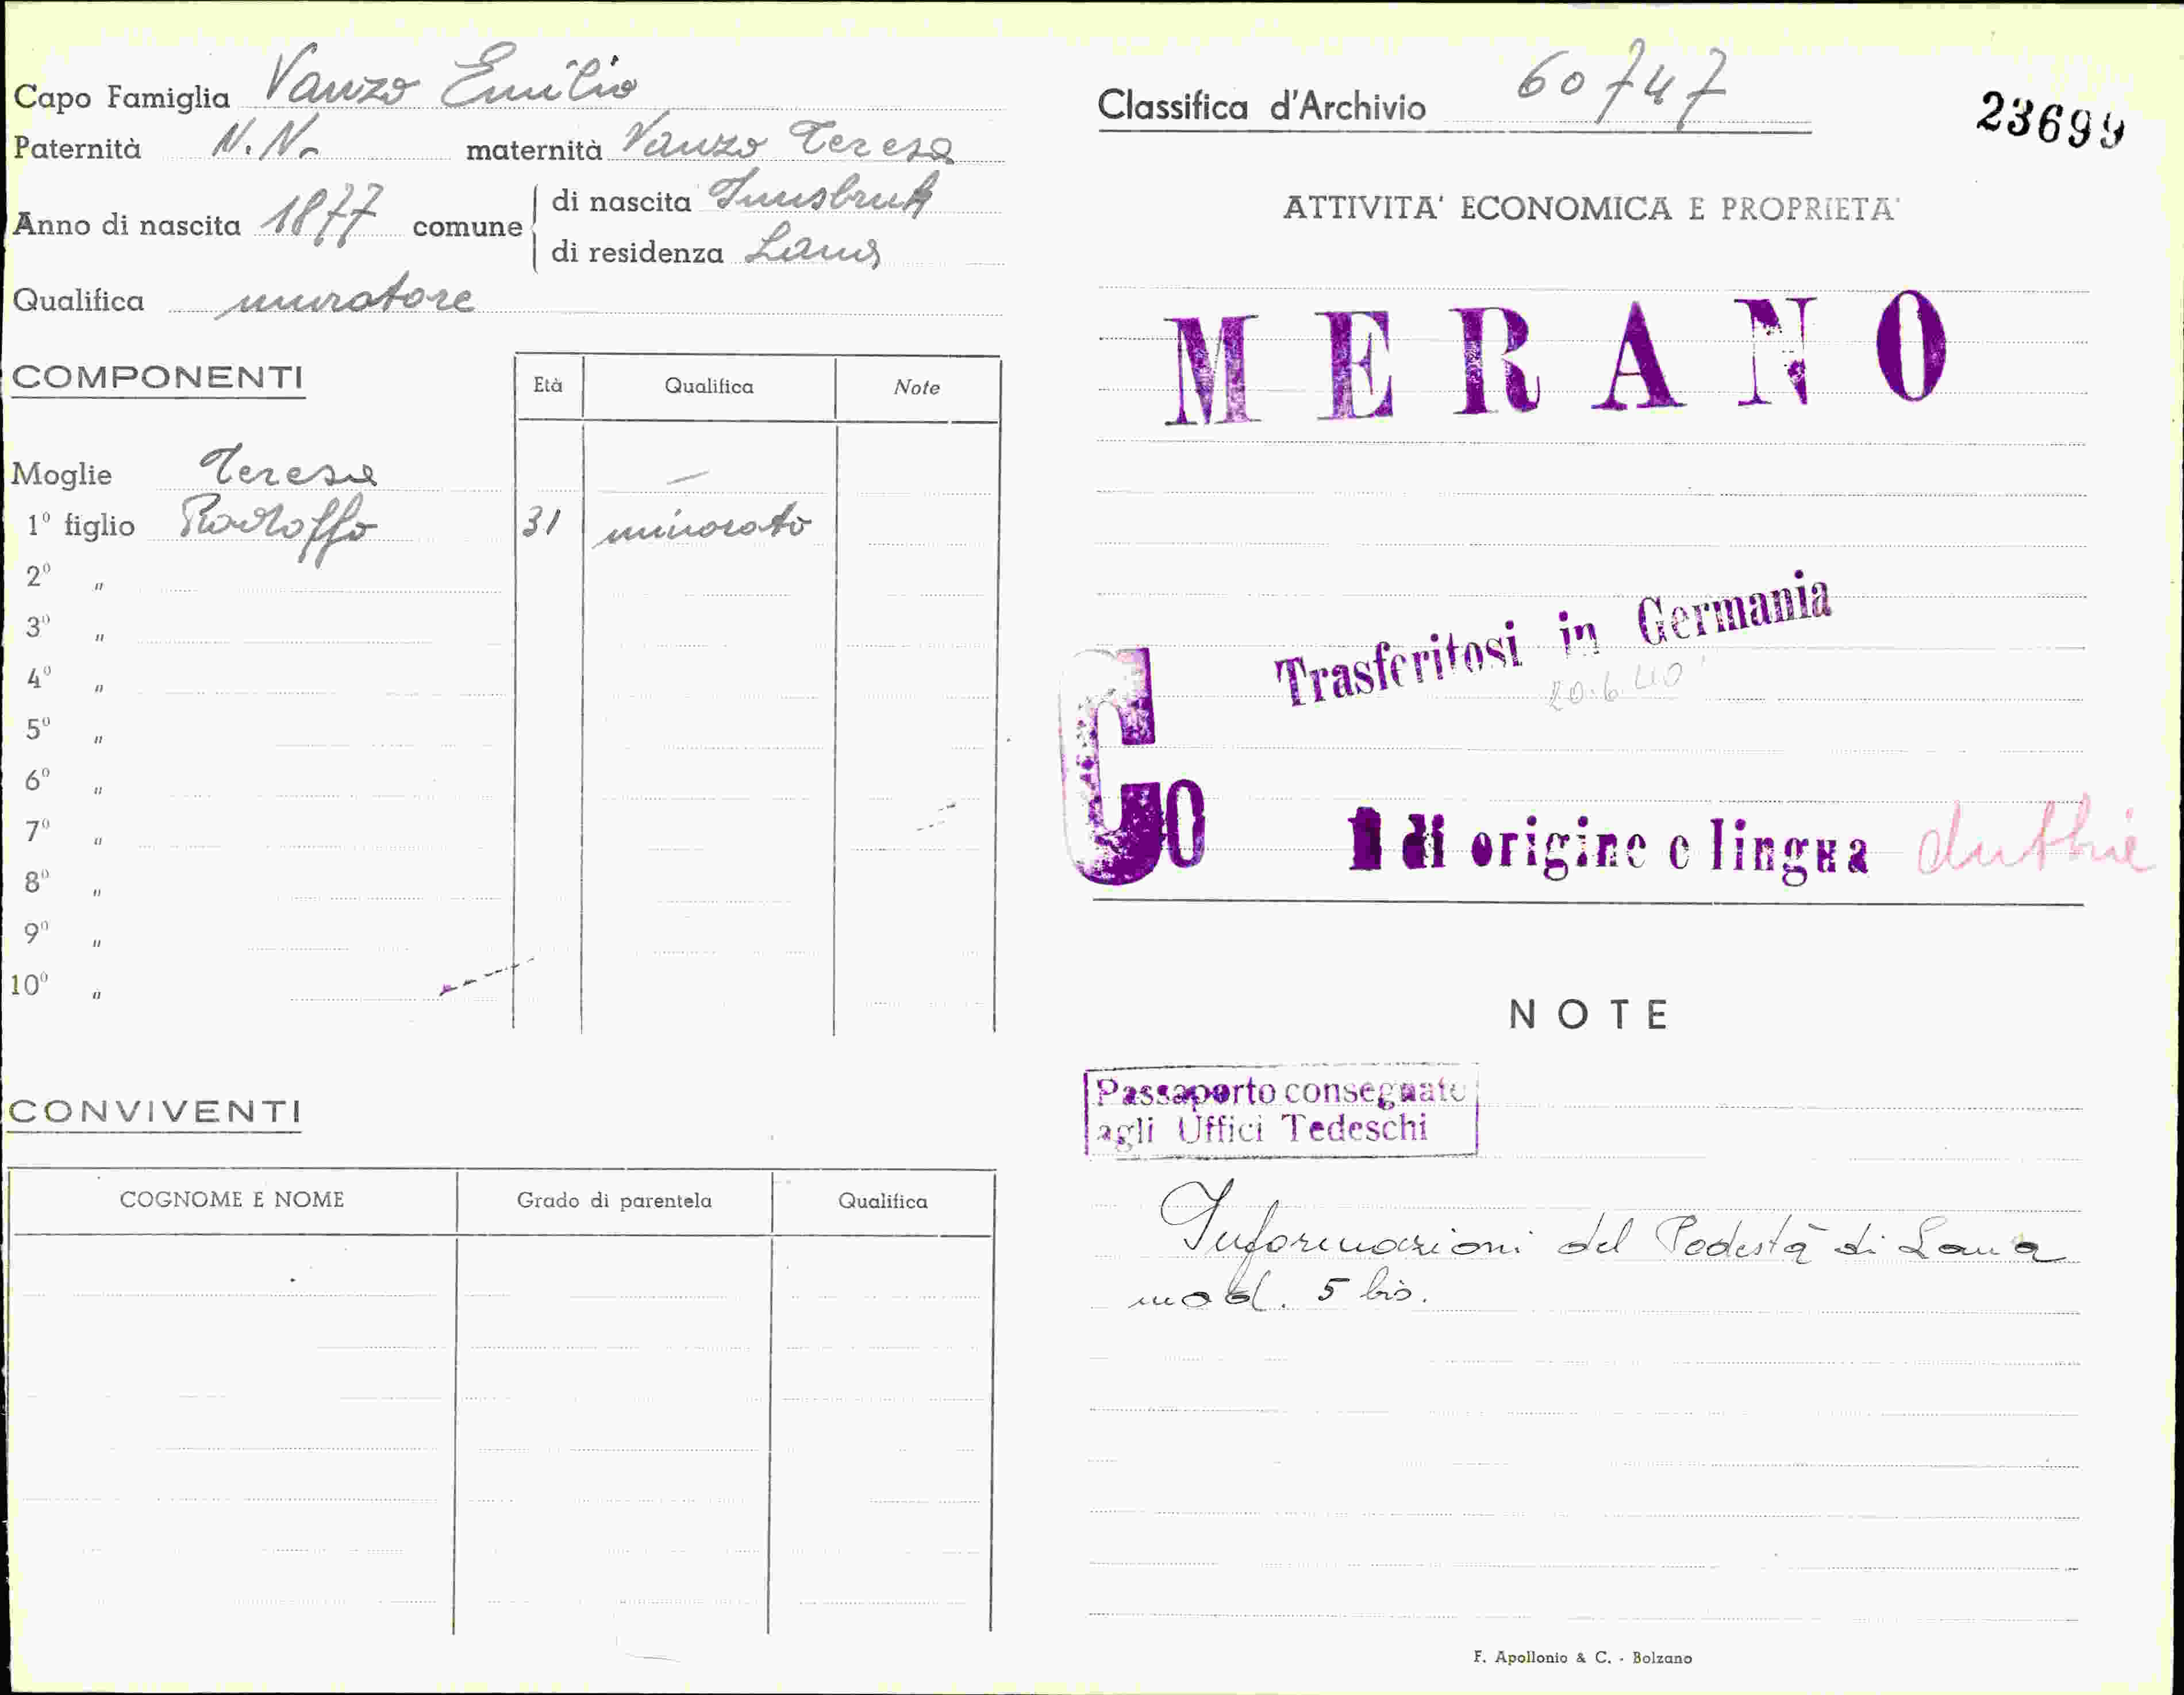 Capo Famiglia Vanzo Emilio
Paternità N.N. maternità Vanzo Teresa
Anno di nascita 1877 comune di nascita Innsbruk
di residenza Lana
Qualifica muratore
COMPONENTI Età Qualifica Note
Moglie Teresa —
1º figlio Rodolfo 31 minorato
2º "
3º "
4º "
5º "
6º "
7º "
8º "
9º "
10º "
CONVIVENTI
COGNOME E NOME Grado di parentela Qualifica
Classifica d'Archivio 60747
23699
ATTIVITA' ECONOMICA E PROPRIETA'
MERANO
Trasferitosi in Germania
20.6.40
G
0 di origine e lingua
NOTE
Passaporto consegnato
agli Uffici Tedeschi
Informazioni del Podestà di Lana
mod. 5 bis.
F. Apollonio & C. - Bolzano